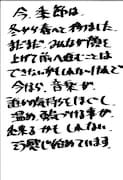 今、季節は、
冬から春へと移りました。
まだまだ、みんなが顔を
上げて前へ進むことは
できないかもしれないけれど
今ほら、音楽が、
誰かの気持ちをほぐし、
温め、勇気づける事が
出来るかもしれない
そう感じ始めています。